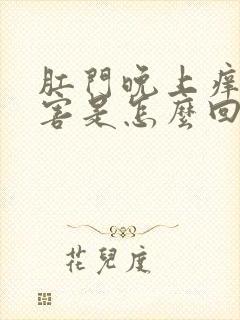 肛門晚上癢
害是怎麼回
花兒度